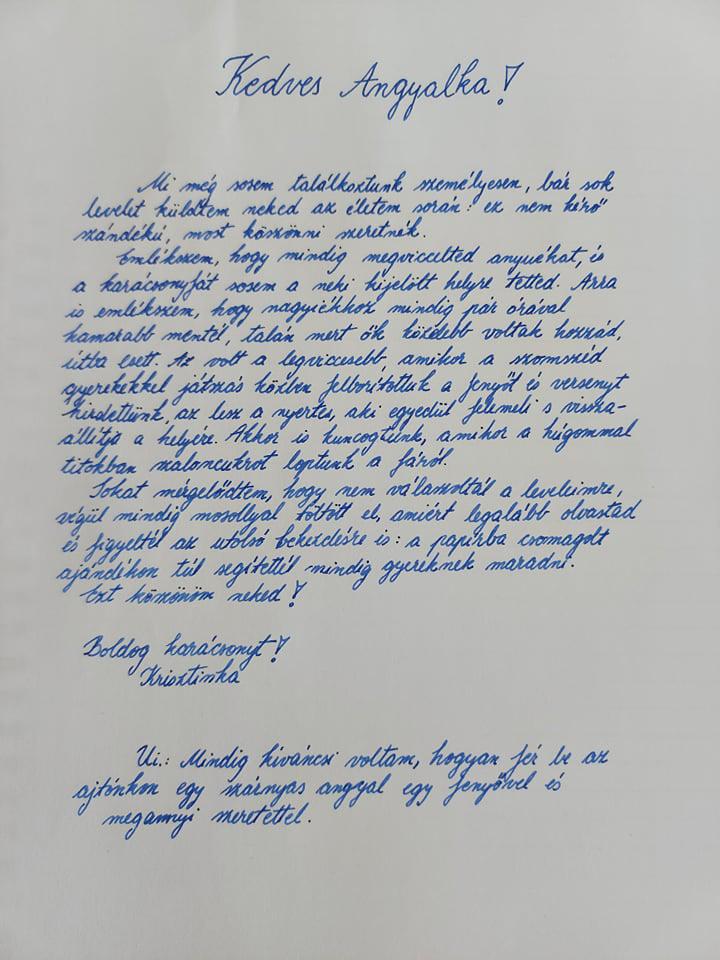 Kedves Angyalka!
Mi még sosem találkoztunk személyesen, bár sok
levelet küldtem neked az életem során: ez nem kérő
szándékú, most köszönni szeretnék.
Emlékszem, hogy mindig megviccelted anyuékat, és
a karácsonyfát sosem a neki kijelölt helyre tetted. Arra
is emlékszem, hogy nagyiékhoz mindig pár órával
hamarabb mentél, talán mert ők közelebb voltak hozzád,
útba esett. Az volt a legviccesebb, amikor a szomszéd
gyerekekkel játszás közben felborítottuk a fenyőt és versenyt
hirdettünk, az lesz a nyertes, aki egyedül felemeli s vissza-
állítja a helyére. Akkor is kuncogtunk, amikor a húgommal
titokban szaloncukrot loptunk a fáról.
Sokat mérgelődtem, hogy nem válaszoltál a leveleimre,
végül mindig mosollyal töltött el, amiért legalább olvastad
és figyeltél az utolsó bekezdésre is: a papírba csomagolt
ajándékon túl segítettél mindig gyereknek maradni.
Ezt köszönöm neked!
Boldog karácsonyt!
Krisztinka
Ui.: Mindig kíváncsi voltam, hogyan fér be az
ajtónkon egy szárnyas angyal egy fenyővel és
megannyi szeretettel.